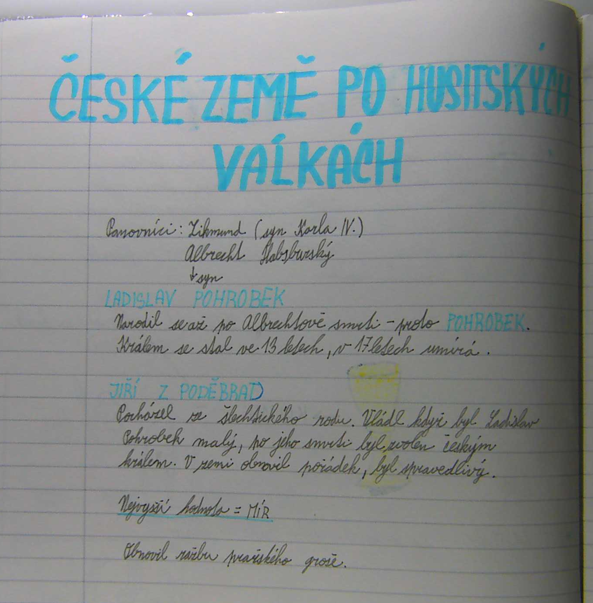 ČESKÉ ZEMĚ PO HUSITSKÝCH
VÁLKÁCH
Panovníci: Zikmund (syn Karla IV.)
Albrecht Habsburský
↓ syn
LADISLAV POHROBEK
Narodil se až po Albrechtově smrti - proto POHROBEK.
Králem se stal ve 13 letech, v 17 letech umírá.
JIŘÍ Z PODĚBRAD
Pocházel ze šlechtického rodu. Vládl když byl Ladislav
Pohrobek malý, po jeho smrti byl zvolen českým
králem. V zemi obnovil pořádek, byl spravedlivý.
Nejvyšší hodnota = MÍR
Obnovil ražbu pražského groše.